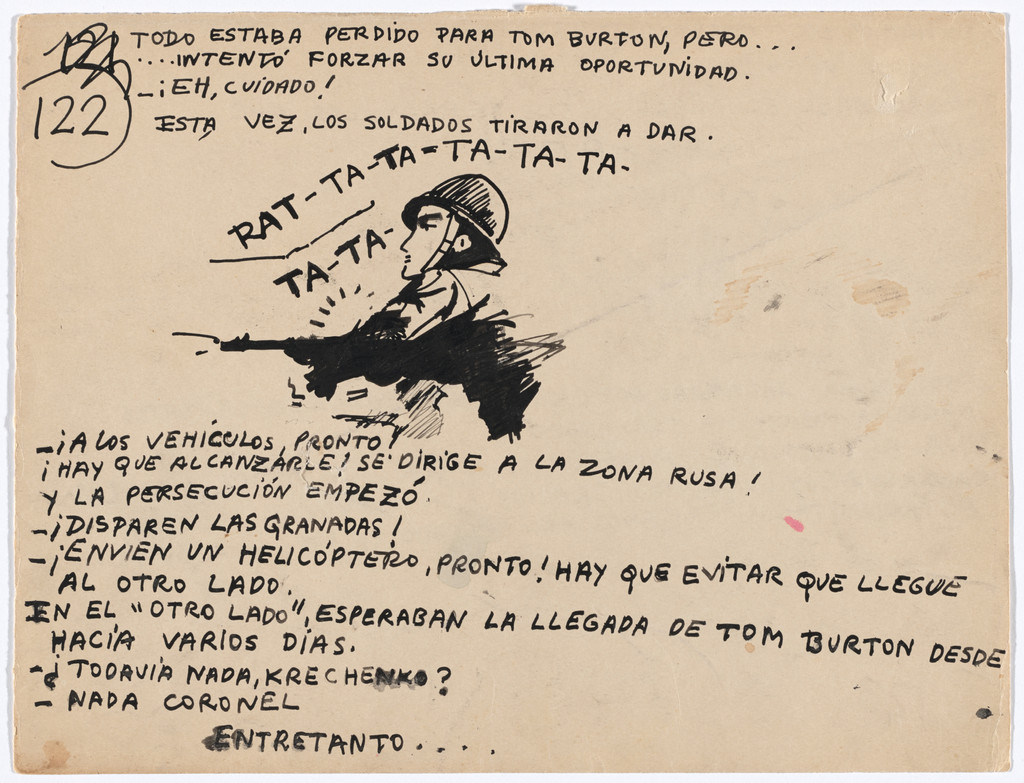 121
122
TODO ESTABA PERDIDO PARA TOM BURTON, PERO...
....INTENTÓ FORZAR SU ÚLTIMA OPORTUNIDAD.
-¡EH, CUIDADO!
ESTA VEZ, LOS SOLDADOS TIRARON A DAR.
RAT-TA-TA=TA-TA-TA-
TA-TA-
-¡A LOS VEHÍCULOS, PRONTO!
¡HAY QUE ALCANZARLE! SE DIRIGE A LA ZONA RUSA!
Y LA PERSECUCIÓN EMPEZÓ.
-¡DISPAREN LAS GRANADAS!
-¡ENVIEN UN HELICÓPTERO, PRONTO! HAY QUE EVITAR QUE LLEGUE
AL OTRO LADO.
EN EL "OTRO LADO", ESPERABAN LA LLEGADA DE TOM BURTON DESDE
HACÍA VARIOS DÍAS.
-¿TODAVÍA NADA, KRECHENKO?
- NADA CORONEL
ENTRETANTO....